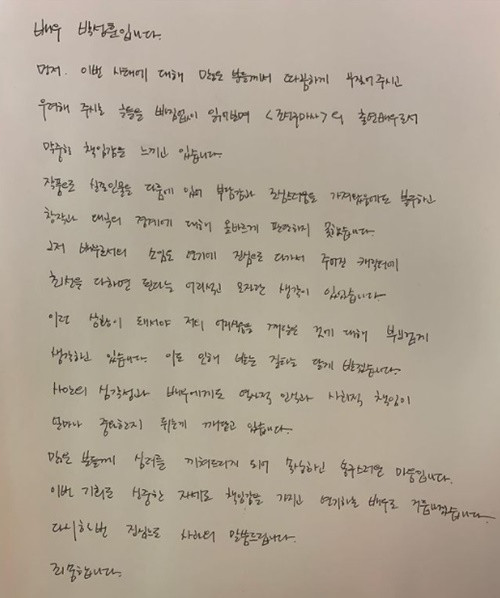 배우 박성훈입니다.
먼저. 이번 사태에 대해 많은 분들께서 따끔하게 꾸짖어 주시고
우려해 주시는 글들을 빠짐없이 읽어보며 <조선구마사>의 출연배우로서
막중한 책임감을 느끼고 있습니다.
작품으로 실존인물을 다룸에 있어 부담감과 조심스러움도 가져왔음에도 불구하고
창작과 왜곡의 경계에 대해 올바르게 판단하지 못했습니다.
그저 배우로서의 소임은 연기에 진심으로 다가서 주어진 캐릭터에
최선을 다하면 된다는 어리석고 모자란 생각이 있었습니다.
이런 상황이 돼서야 저의 어리석음을 깨달은 것에 대해 부끄럽게
생각하고 있습니다. 이로 인해 받는 질타는 달게 받겠습니다.
사안의 심각성과 배우에게도 역사적 인식과 사회적 책임이
얼마나 중요한지 뒤늦게 깨닫고 있습니다.
많은 분들께 심려를 끼쳐드리게 되어 죄송하고 송구스러운 마음입니다.
이번 기회로 신중한 자세로 책임감을 가지고 연기하는 배우로 거듭나겠습니다.
다시 한번 진심으로 사과의 말씀드립니다.
죄송합니다.